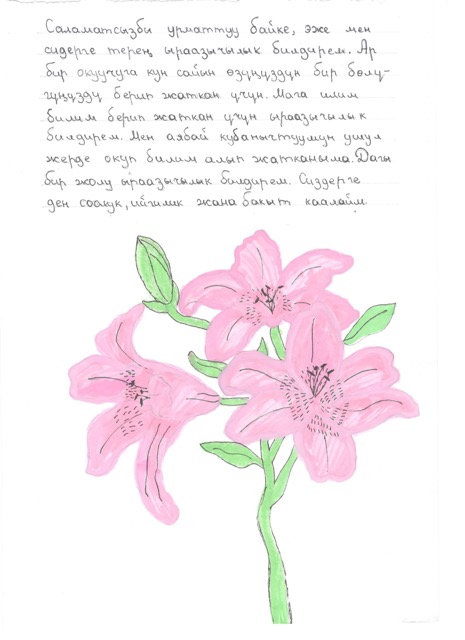 Саламатсызбы урматтуу байке, эже мен
сидерге терең ыраазычылык билдирем. Ар
бир окуучуга күн сайын өзүңүздүн бир бөлү-
гүңүздү берип жаткан үчүн. Мага илим
билим берип жаткан үчүн ыраазычылык
билдирем. Мен аябай кубанычтуумун ушул
жерде окуп билим алып жатканыма. Дагы
бир жолу ыраазычылык билдирем. Сиздерге
ден соолук, ийгилик жана бакыт каалайм.